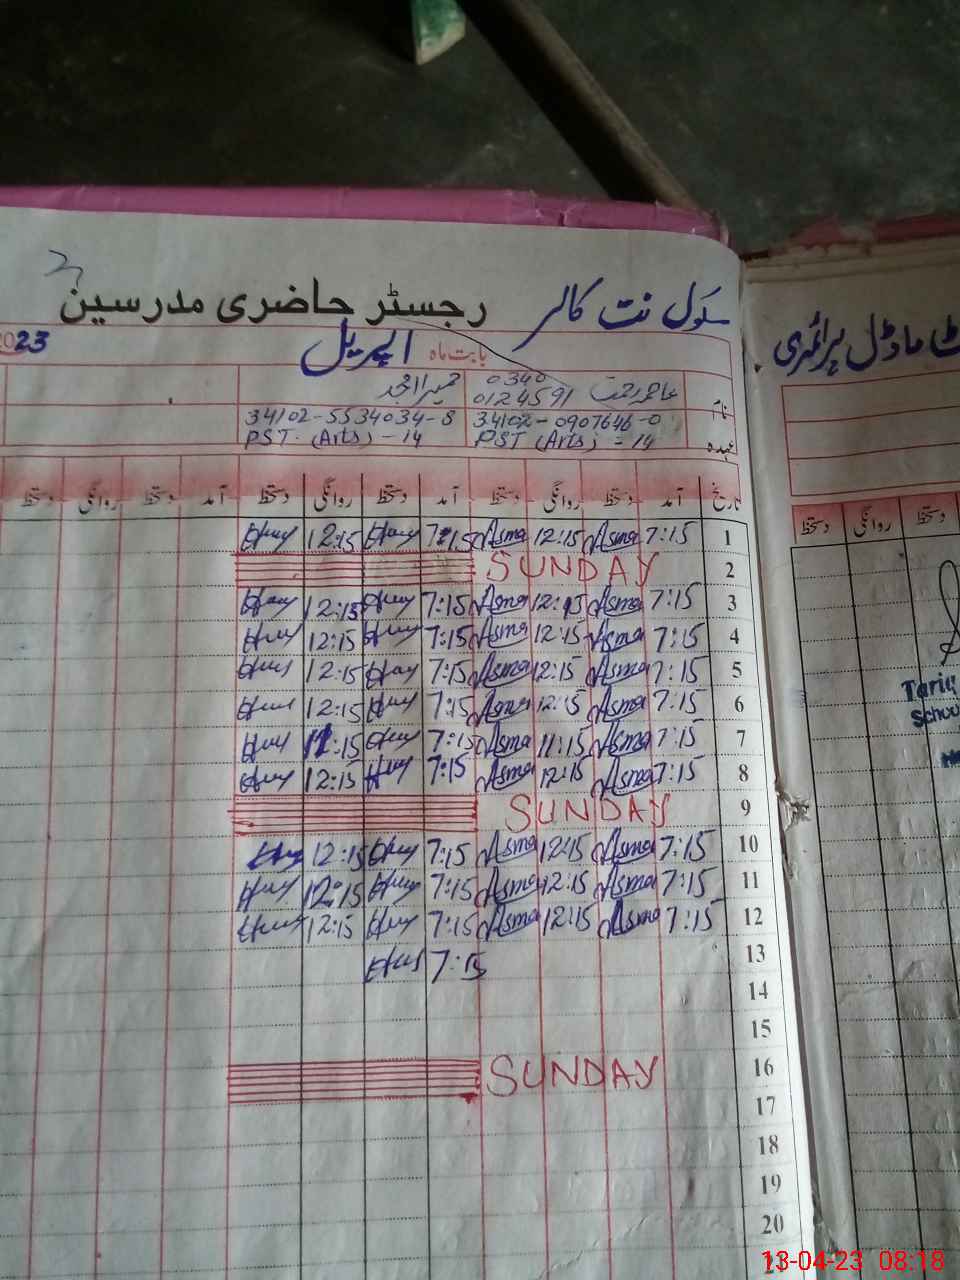 سکول نت کالر
رجسٹر حاضری مدرسین
بابت ماہ اپریل 2023
ٹ ماڈل پرائمری
نام عاصمہ رحمت 0340 0124591 حمیرا امجد
34102-0907646-0 34102-5534034-8
عہدہ PST (Arts) - 14 PST. (Arts) - 14
تاریخ آمد دستخط روانگی دستخط آمد دستخط روانگی دستخط آمد دستخط روانگی دستخط
دستخط روانگی دستخط
1 7:15 Asma 12:15 Asma 7:15 12:15
2 SUNDAY
3 7:15 Asma 12:15 Asma 7:15 12:15
4 7:15 Asma 12:15 Asma 7:15 12:15
5 7:15 Asma 12:15 Asma 7:15 12:15
6 7:15 Asma 12:15 Asma 7:15 12:15
7 7:15 Asma 11:15 Asma 7:15 11:15
8 7:15 Asma 12:15 Asma 7:15 12:15
9 SUNDAY
10 7:15 Asma 12:15 Asma 7:15 12:15
11 7:15 Asma 12:15 Asma 7:15 12:15
12 7:15 Asma 12:15 Asma 7:15 12:15
13 7:15
14
15
16 SUNDAY
17
18
19
20
Tariq
School
13-04-23 08:18